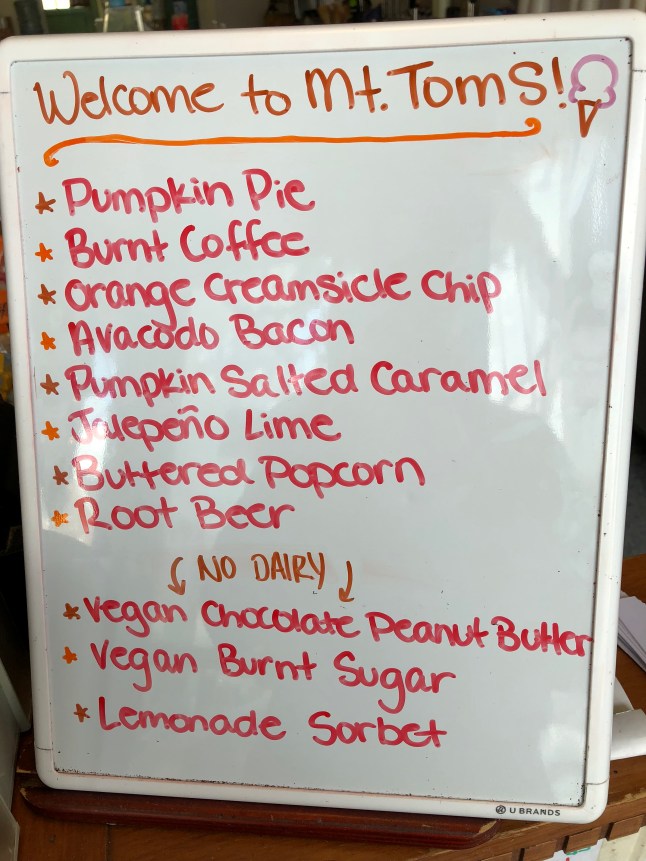 Welcome to Mt. Toms!
* Pumpkin Pie
* Burnt Coffee
* Orange Creamsicle Chip
* Avacodo Bacon
* Pumpkin Salted Caramel
* Jalepeño Lime
* Buttered Popcorn
* Root Beer
NO DAIRY
* Vegan Chocolate Peanut Butter
* Vegan Burnt Sugar
* Lemonade Sorbet
U BRANDS